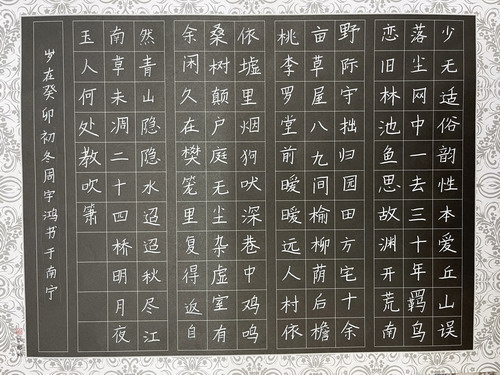 少无适俗韵性本爱丘山误
落尘网中一去三十年羁鸟
恋旧林池鱼思故渊开荒南
野际守拙归园田方宅十余
亩草屋八九间榆柳荫后檐
桃李罗堂前暧暧远人村依
依墟里烟狗吠深巷中鸡鸣
桑树颠户庭无尘杂虚室有
余闲久在樊笼里复得返自
然青山隐隐水迢迢秋尽江
南草未凋二十四桥明月夜
玉人何处教吹箫
岁在癸卯初冬周宇鸿书于南宁